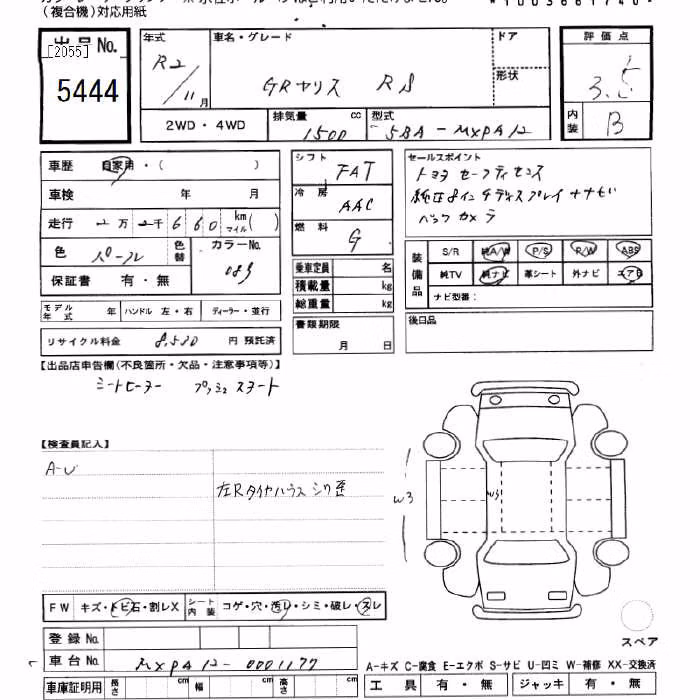 (複合機)対応用紙
出品 No.
[2055]
5444
年式
R2/11月
車名・グレード
GRヤリス RS
ドア
形状
評価点
3.5
内装
B
2WD・4WD
排気量 cc
1500
型式
5BA-MXPA12
車歴 自家用・( )
車検 年 月
走行 2万2千660 km マイル( )
色 パール
色替
カラーNo.
089
保証書 有・無
シフト FAT
冷房 AAC
燃料 G
乗車定員 名
積載量 kg
総重量 kg
書類期限
月 日
セールスポイント
トヨタ セーフティセンス
純正8インチディスプレイ ナナビ
バックカメラ
装備品
S/R 純A/W P/S R/W ABS
純TV 純ナビ 革シート 外ナビ エアB
ナビ型番:
後日品
モデル年式 年 ハンドル 左・右 ディーラー・並行
リサイクル料金 8,520 円 預託済
【出品店申告欄(不良箇所・欠品・注意事項等)】
シートヒーター プッシュスタート
【検査員記入】
A-U
左Rタイヤハウス シワ歪
W3
W3
FW キズ・トビ石・割レX シート内装 コゲ・穴・汚レ・シミ・破レ・スレ
登録 No.
車台 No. MXPA12-0001177
車庫証明用 長さ cm 幅 cm 高さ cm
スペア
A-キズ C-腐食 E-エクボ S-サビ U-凹ミ W-補修 XX-交換済
工具 有・無 ジャッキ 有・無